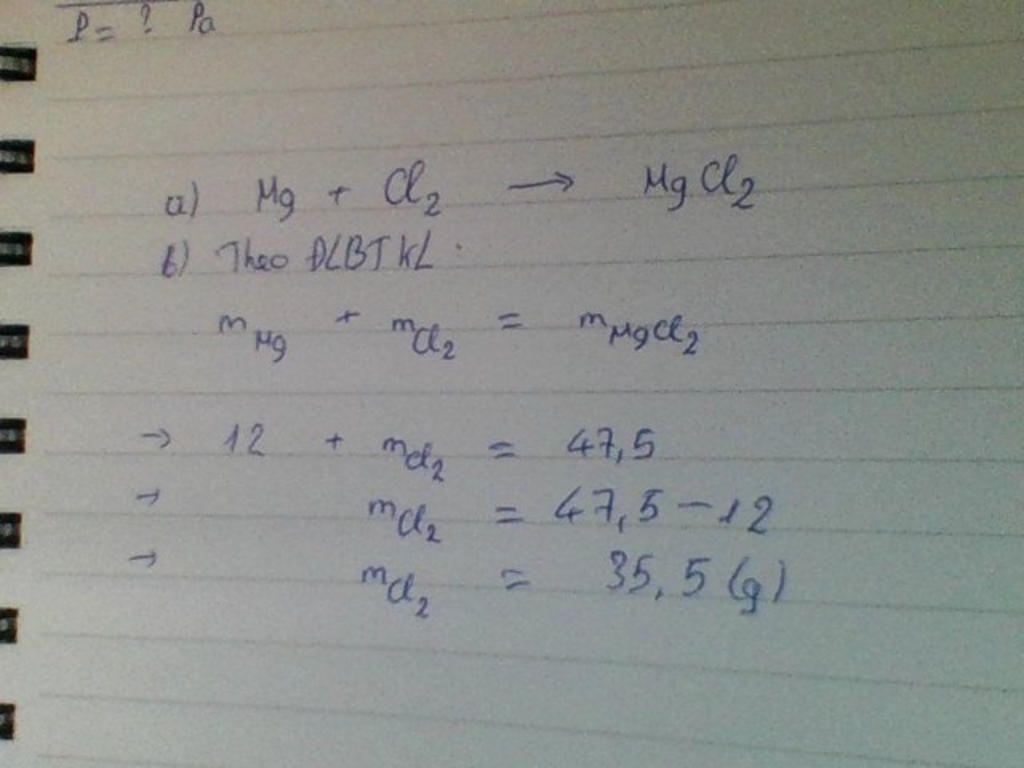 P = ? Pa
a) Mg + Cl₂ → MgCl₂
b) Theo ĐLBTKL.
m_Mg + m_Cl₂ = m_MgCl₂
→ 12 + m_Cl₂ = 47,5
→ m_Cl₂ = 47,5 - 12
→ m_Cl₂ = 35,5 (g)